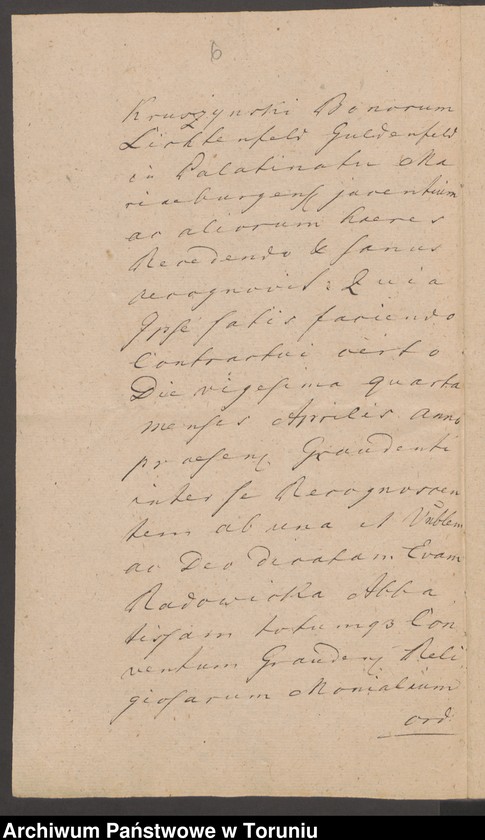 6
Kruszynski Bonorum
Lichtenfeld Guldenfeld
in Palatinatu Ma
riaeburgens jacentium
ac aliorum haeres
Recedendo & sanus
recognovit: Quia
Ipse satis faciendo
Contractui certo
Die vigesima quarta
mensis Aprilis anno
praesen Graudenti
inter se Recognoscen
tem ab una et Vnblem
ac Deo dicatam Evam
Radowicka Abba
tissam totumq3 Con
ventum Grauden Reli
giosarum Monialium
ord
Archiwum Państwowe w Toruniu